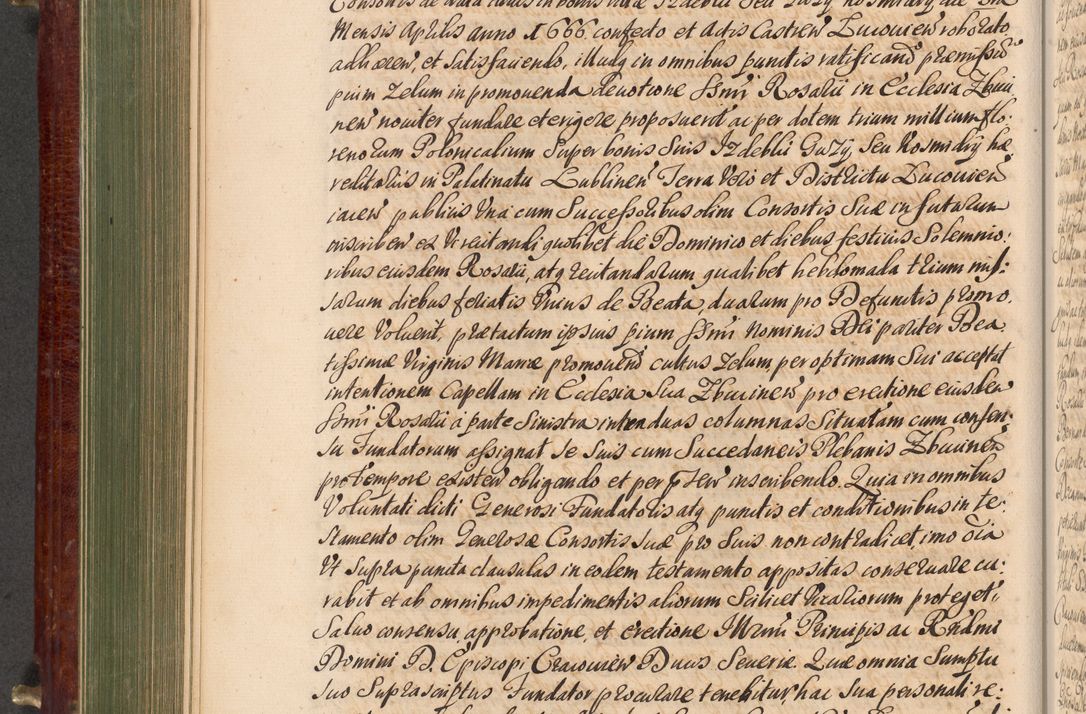 Mensis Aprilis anno 1666. confecto et Actis Castren̄ Lucouien̄ roborato,
adhæren̄, et satisfaciendo, illudq in omnibus punctis ratificand̄ præmisso
pium Zelum in promouenda deuotione SSmi Rosarii in Ecclesia Zbuci
nen̄ nouiter fundare et erigere proposuerit ac per dotem trium millium flo:
renorum Polonicalium super bonis suis Izdebki Guzy, seu Kosmidry hæ
reditariis in Palatinatu Lublinen̄ Terra Vero et Districtu Lucouien̄
iacen̄ publicis Vna cum Successoribus olim Consortis suæ in futurum
inscriben̄ ex Vi recitandi quolibet die Dominico et diebus festiuis Solemnio:
ribus eiusdem Rosarii, atq recitandarum qualibet hebdomada trium mis:
sarum diebus feriatis Vnius de Beata, duarum pro Defunctis promo,
uere Voluerit, prætactum ipsius pium SSmi Nominis Dei pariter Bea
tissimæ Virginis Mariæ promouend̄ cultus Zelum per optimam sui acceptat
intentionem Capellam in Ecclesia sua Zbucinen̄ pro erectione eiusdem
SSmi Rosarii a parte Sinistra inter duas columnas Situatam cum consen:
su Fundatorum assignat se suis cum Succedaneis Plebanis Zbucinen̄
pro tempore existen̄ obligando et per p̄sen̄ inscribendo. Quia in omnibus
Voluntati dicti Generosi Fundatoris atq punctis et conditionibus in te:
stamento olim Generosæ Consortis suæ pro suis non contradicet, imo oīa
Vt supra puncta clausulas in eodem testamento appositas conseruare cu:
rabit et ab omnibus impedimentis aliorum Scilicet Vicariorum proteget,
Saluo consensu, approbatione, et erectione Illrmi Principis ac Rndmi
Domini D. Episcopi Cracouien̄ Ducis Seueriæ. Quæ omnia Sumptu
suo Suprascriptus Fundator procurare tenebitur, hac sua personali re: